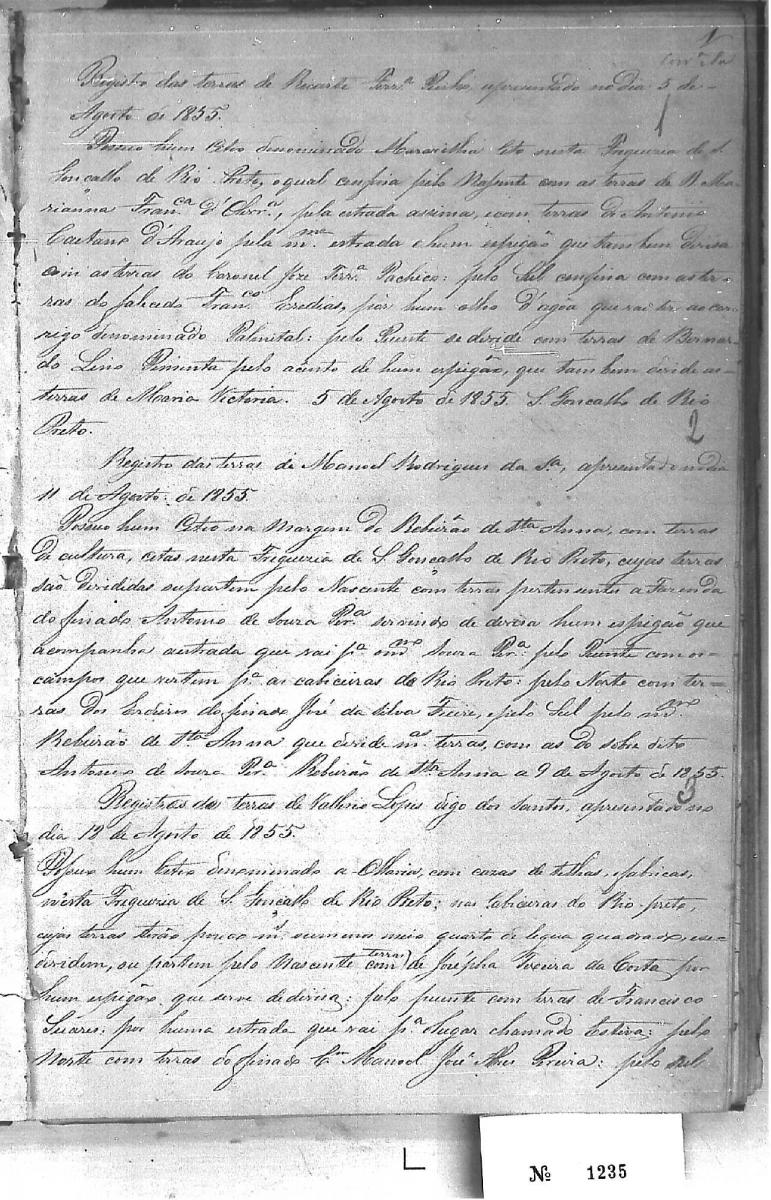 1
Registro das terras de Ricarte Ferrª apresentado no dia 5 de
Agosto de 1855.
1
Possuo hum Citio denominado Maravilha Cito nesta Fregueria de S.
Goncallo de Rio Preto, o qual confina pelo Nascente com as terras de D. Ma-
rianna Fran.ca d'Olivrª, pela estrada assima, e com terras de Antonio
Caetano d'Araujo pela m.ma estrada e hum espigão que tambem divisa
com as terras do Coronel Joze Ferrª Pacheco: pelo Sul confina com as ter-
ras do falecido Fran.co Eredias, por hum olho d'agôa que vai ter ao cor-
rigo denominado Palmital: pelo Puente se divide com terras de Bernar-
do Lino Pimenta pelo acento de hum espigão, que tambem divide as
terras de Maria Victoria. 5 de Agosto de 1855. S. Goncallo de Rio
Preto.
2
Registro das terras de Manoel Rodrigues da Sª, apresentado no dia
11 de Agosto de 1855
Possuo hum Citio na Margem do Rebeirão de Stta Anna, com terras
de cultura, citas nesta Fregueria de S. Goncallo de Rio Preto, cujas terras
são divididas ou partem pelo Nascente com terras pertensentes a Fazenda
do finado Antonio de Souza Perª servindo de deviza hum espigão que
acompanha a estrada que vai pª o m.mo Souza Perª: pelo Puente com os
campos que vertem pª as cabiceiras do Rio Preto: pelo Norte com ter-
ras dos Erdeiros do finado José da Silva Freire, e pelo Sul pelo m.mo
Rebeirão de Stta Anna que divide m.as terras, com as do sobre dito
Antonio de Souza Perª. Rebeirão de Stta Anna a 9 de Agosto de 1855.
3
Registro das terras de Vallerio Lopes digo dos Santos, apresentado no
dia 12 de Agosto de 1855.
Possuo hum Citio denominado a Ollaria, com cazas de telhas, e fabricas,
nesta Fregueria de S. Goncallo de Rio Preto; nas Cabiceiras do Rio preto,
cujas terras terão pouco m.s ou menos meio quarto de legua quadrada, e se
dividem, ou partem pelo Nascente com terras de Josépha Teixeira da Costa por
hum espigão, que serve de divisa: pelo puente com terras de Francisco
Suares: por huma estrada que vai pª o lugar chamado Estiva: pelo
Norte com terras do finado C.m Manoel José Alves Pereira: pelo sul
Nº 1235